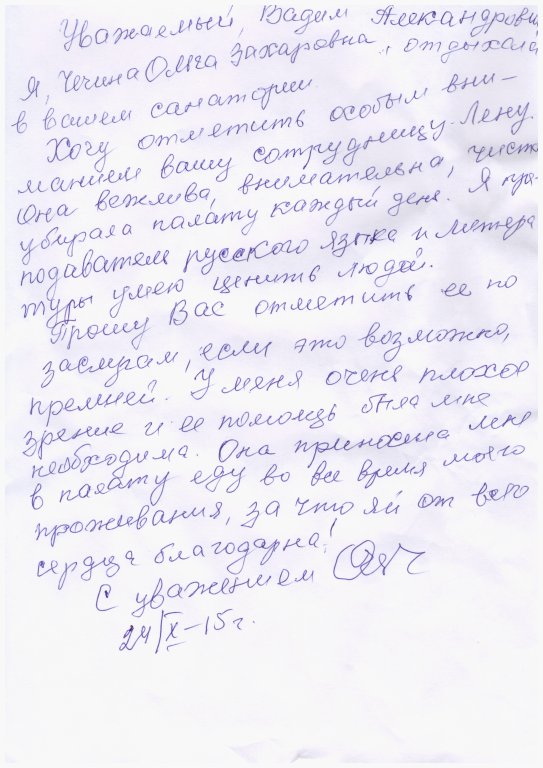 Уважаемый Вадим Александрович
Я, Чечина Ольга Захаровна, отдыхала
в вашем санатории.
Хочу отметить особым вни-
манием вашу сотрудницу Лену.
Она вежлива, внимательна, чисто
убирала палату каждый день. Я пре-
подаватель русского языка и литера
туры умею ценить людей.
Прошу Вас отметить ее по
заслугам, если это возможно,
премией. У меня очень плохое
зрение и ее помощь была мне
необходима. Она приносила мне
в палату еду во все время моего
проживания, за что я ей от всего
сердца благодарна!
С уважением
24/X-15г.